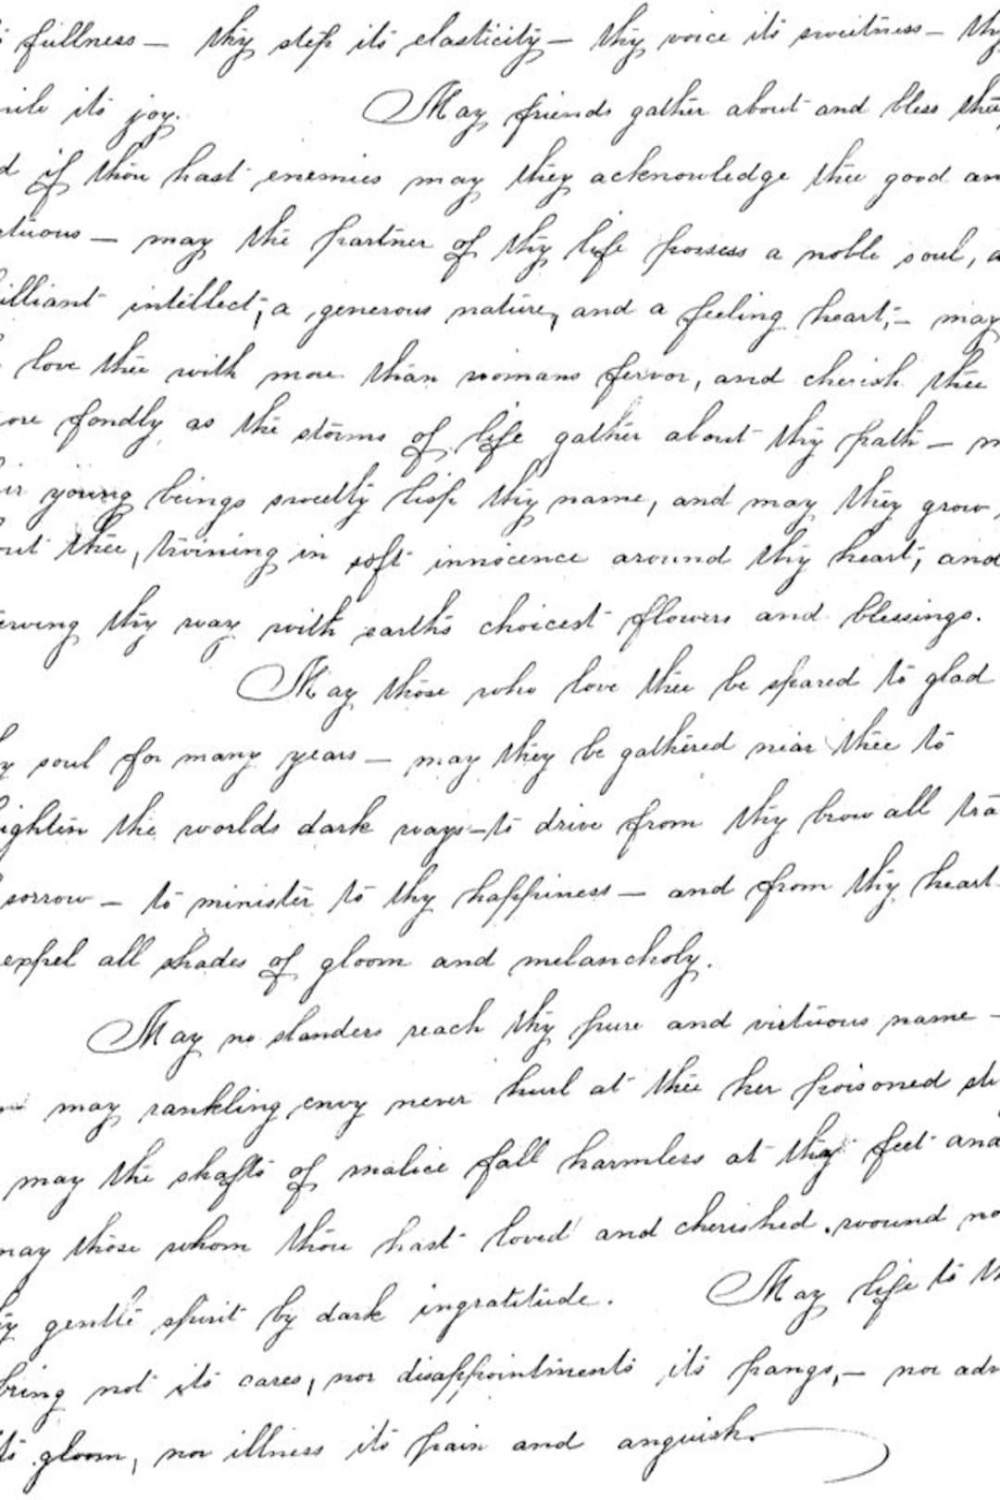 fullness — thy step its elasticity — thy voice its sweetness — thy
its joy. May friends gather about and bless thee
if thou hast enemies may they acknowledge thee good an
tuous — may the partner of thy life possess a noble soul, a
illiant intellect, a generous nature, and a feeling heart, — may
love thee with more than womans fervor, and cherish thee
ore fondly as the storms of life gather about thy path — m
young beings sweetly lisp thy name, and may they grow
out thee, twining in soft innocence around thy heart, and
ewing thy way with earths choicest flowers and blessings.
May those who love thee be spared to glad
y soul for many years — may they be gathered near thee to
ighten the worlds dark ways — to drive from thy brow all tra
sorrow — to minister to thy happiness — and from thy heart
expel all shades of gloom and melancholy.
May no slanders reach thy pure and virtuous name —
may rankling envy never hurl at thee her poisoned sh
may the shafts of malice fall harmless at thy feet and
may those whom thou hast loved and cherished wound no
y gentle spirit by dark ingratitude. May life to th
bring not its cares, nor disappointments its pangs, — nor adv
ts gloom, nor illness its pain and anguish.